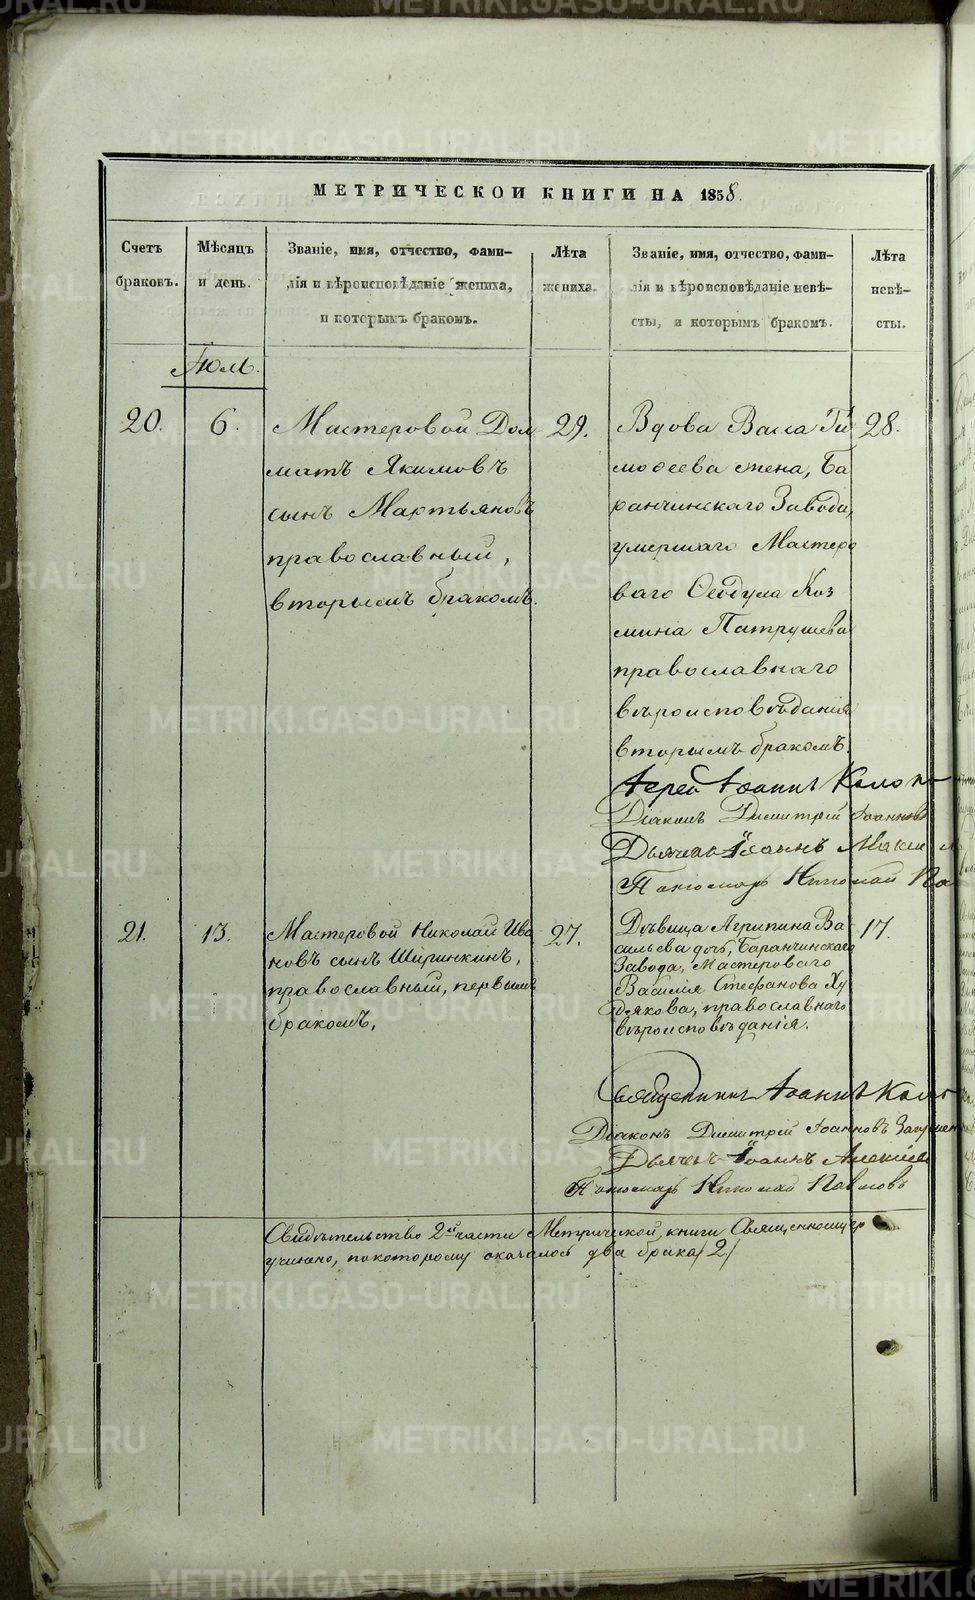 МЕТРИЧЕСКОЙ КНИГИ НА 1858.
Счетъ
браковъ.
Мѣсяцъ
и день.
Званіе, имя, отчество, фами-
лія и вѣроисповѣданіе жениха,
и которымъ бракомъ.
Лѣта
жениха.
Званіе, имя, отчество, фами-
лія и вѣроисповѣданіе невѣ-
сты, и которымъ бракомъ.
Лѣта
невѣ-
сты.
Іюль.
20.
6.
Мастеровой Дол
матъ Якимовъ
сынъ Мартьяновъ
православный,
вторымъ бракомъ.
29.
Вдова Васса Ти
моѳеева жена, Ба
ранчинскаго Завода,
умершаго Мастеро
ваго Ѳеодула Коз
мина Патрушева
православнаго
вѣроисповѣданія
вторымъ бракомъ.
28.
Іерей Іоаннъ
Діаконъ Димитрій Іоанновъ
Дьячекъ Іоаннъ
Пономарь Николай
21.
13.
Мастеровой Николай Ива
новъ сынъ Ширинкинъ,
православный, первымъ
бракомъ,
27.
Дѣвица Агрипина Ва
сильева дочь, Баранчинскаго
Завода, Мастероваго
Василія Стефанова Ху
дякова, православнаго
вѣроисповѣданія.
17.
Священникъ Іоаннъ
Діаконъ Димитрій Іоанновъ
Дьячекъ Іоаннъ Алексіев
Пономарь Николай Павловъ
Свидѣтельство 2й части Метрической книги Священно
учинено, по которому оказалось два брака /2/
METRIKI.GASO-URAL.RU